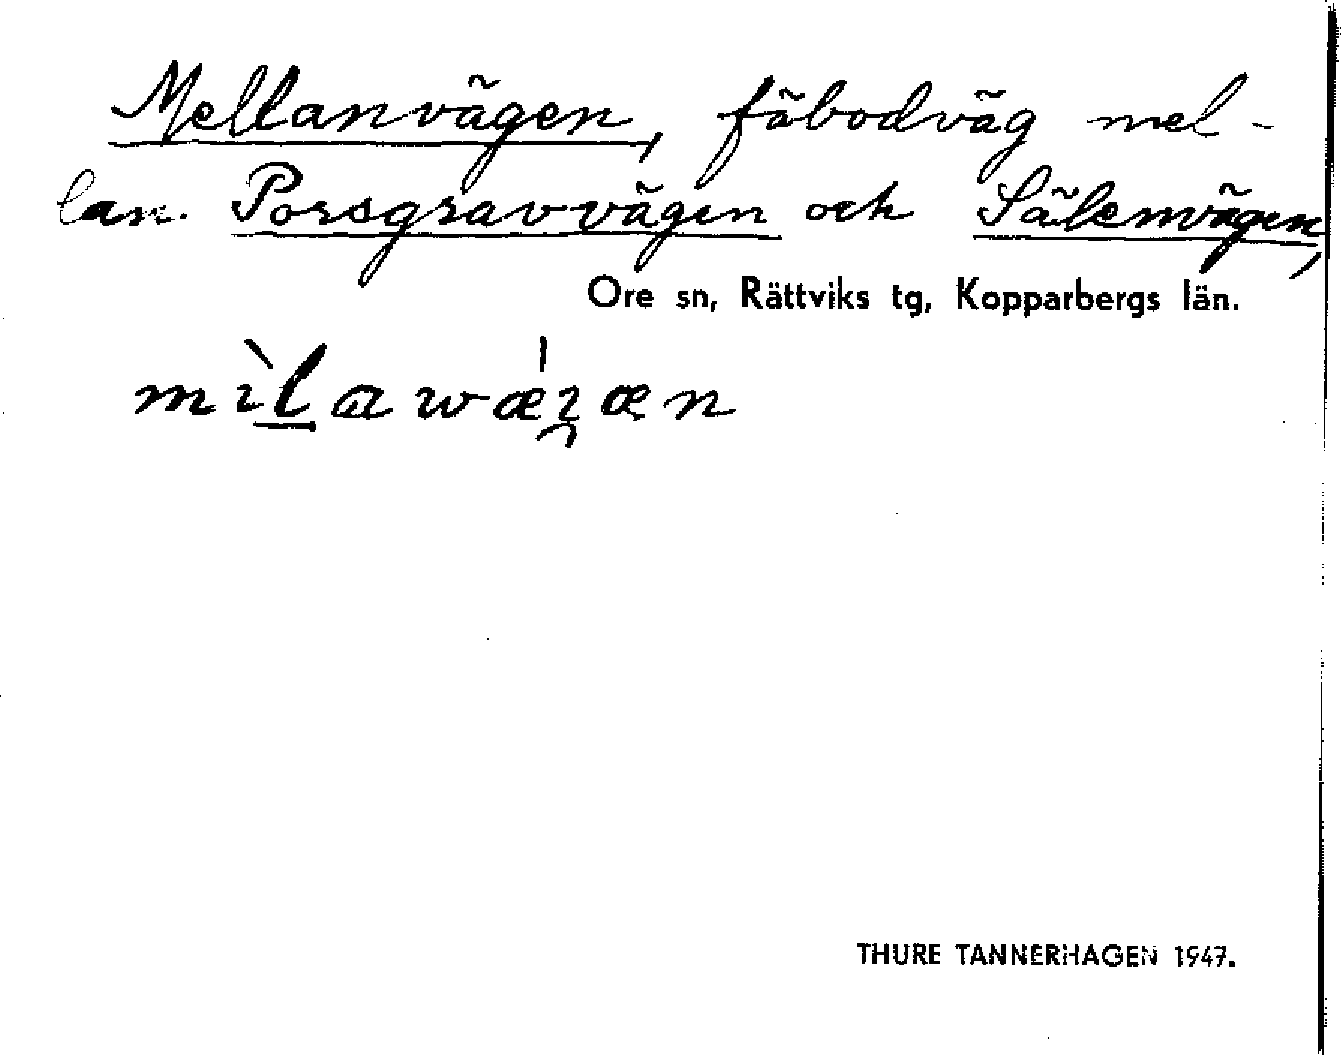 Mellanvägen, fäbodväg mel-
lan Porsgravvägen och Sälenvägen,
Ore sn, Rättviks tg, Kopparbergs län.
THURE TANNERHAGEN 1947.